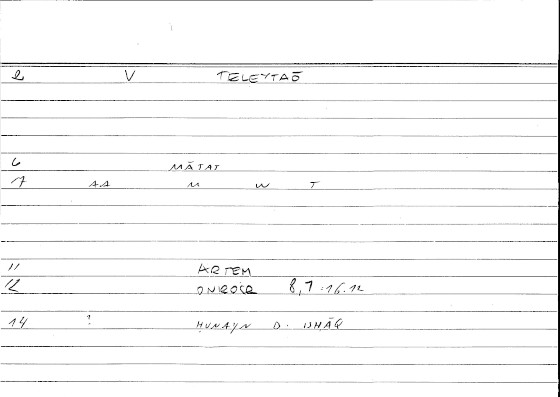 2 V TELEYTAŌ
6 MĀTAT
7 AA M W T
11 ARTEM
12 ONIROCR 8,7 :16.12
14 ? ḤUNAYN B. ISḤĀQ